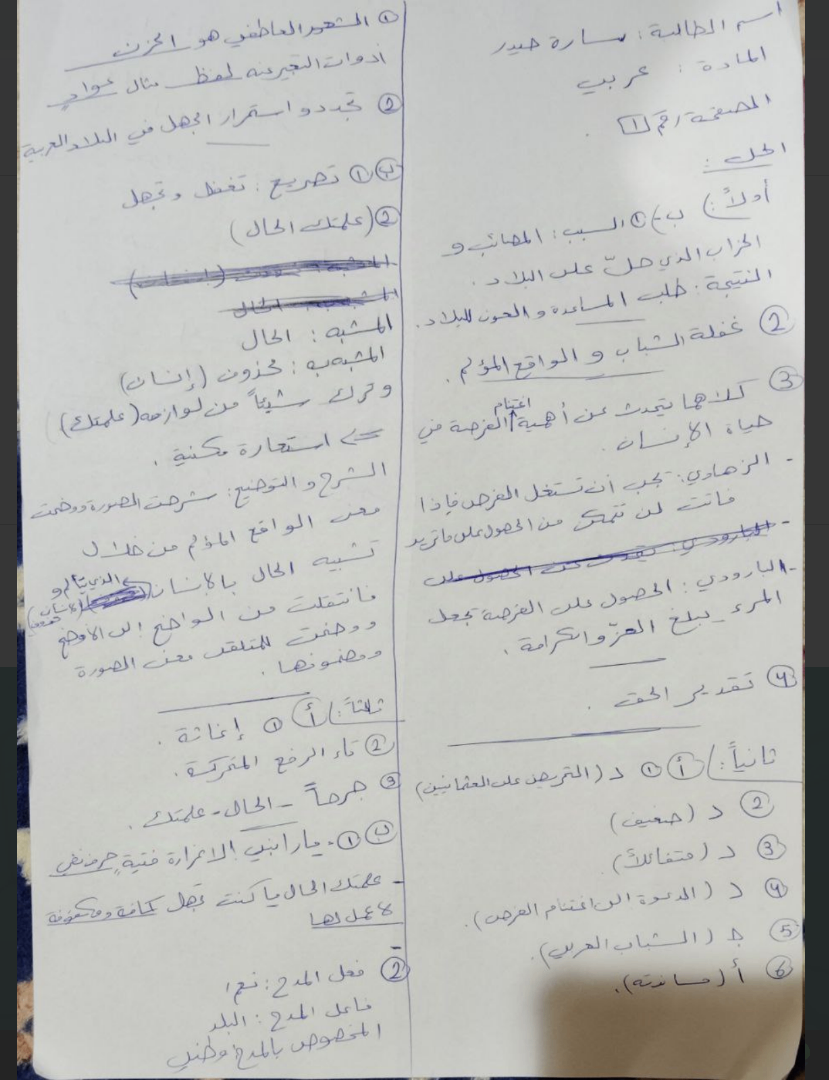 اسم الطالبة: سارة حيدر
المادة: عربي
الصفحة رقم 1
الحل:
أولاً: ب-) ① السبب: المصائب و
الخراب الذي حلّ على البلاد.
النتيجة: طلب المساعدة و العون للبلاد.
② غفلة الشباب و الواقع المؤلم.
③ كلاهما يتحدث عن أهمية اغتنام الفرصة في
حياة الإنسان.
- الزهاوي: يجب أن تستغل الفرص فإذا
فاتت لن تتمكن من الحصول على ما تريد
- البارودي: الحصول على الفرصة تجعل
المرء يبلغ العزّ والكرامة.
④ تقدير الحق.
ثانياً: أ) ① د (التحريض على العثمانيين)
② د (ضعيف)
③ د (متفائلاً)
④ د (الدعوة الى اغتنام الفرص).
⑤ ج (الشباب العربي).
⑥ أ (مساندته).
① الشعور العاطفي هو الحزن
أدوات التعبير عنه لفظ مثال عوادٍ
② تجدد و استمرار الجهل في البلاد العربية
ب) ① تصريع: تغفل و تجهل
② (علمتك الحال)
المشبه: الحال
المشبه به: محذوف (إنسان)
وترك شيئاً من لوازمه (علمتك)
<= استعارة مكنية.
الشرح و التوضيح: شرحت الصورة ووضحت
معنى الواقع المؤلم من خلال
تشبيه الحال بالإنسان الذي
فانتقلت من الواضح إلى الأوضح
ووضحت للمتلقي معنى الصورة
ومضمونها.
ثالثاً: أ) ① إغاثة.
② تاء الرفع المتحركة.
③ جرحاً - الحال - علمتك.
ب) ① - يا رابني الا غرارة فتية حرف نفي
- علمتك الحال ما كنت تجهل كافة ومكفوفة
لا عمل لها
② فعل المدح: نعم
فاعل المدح: البلد
المخصوص بالمدح وطني